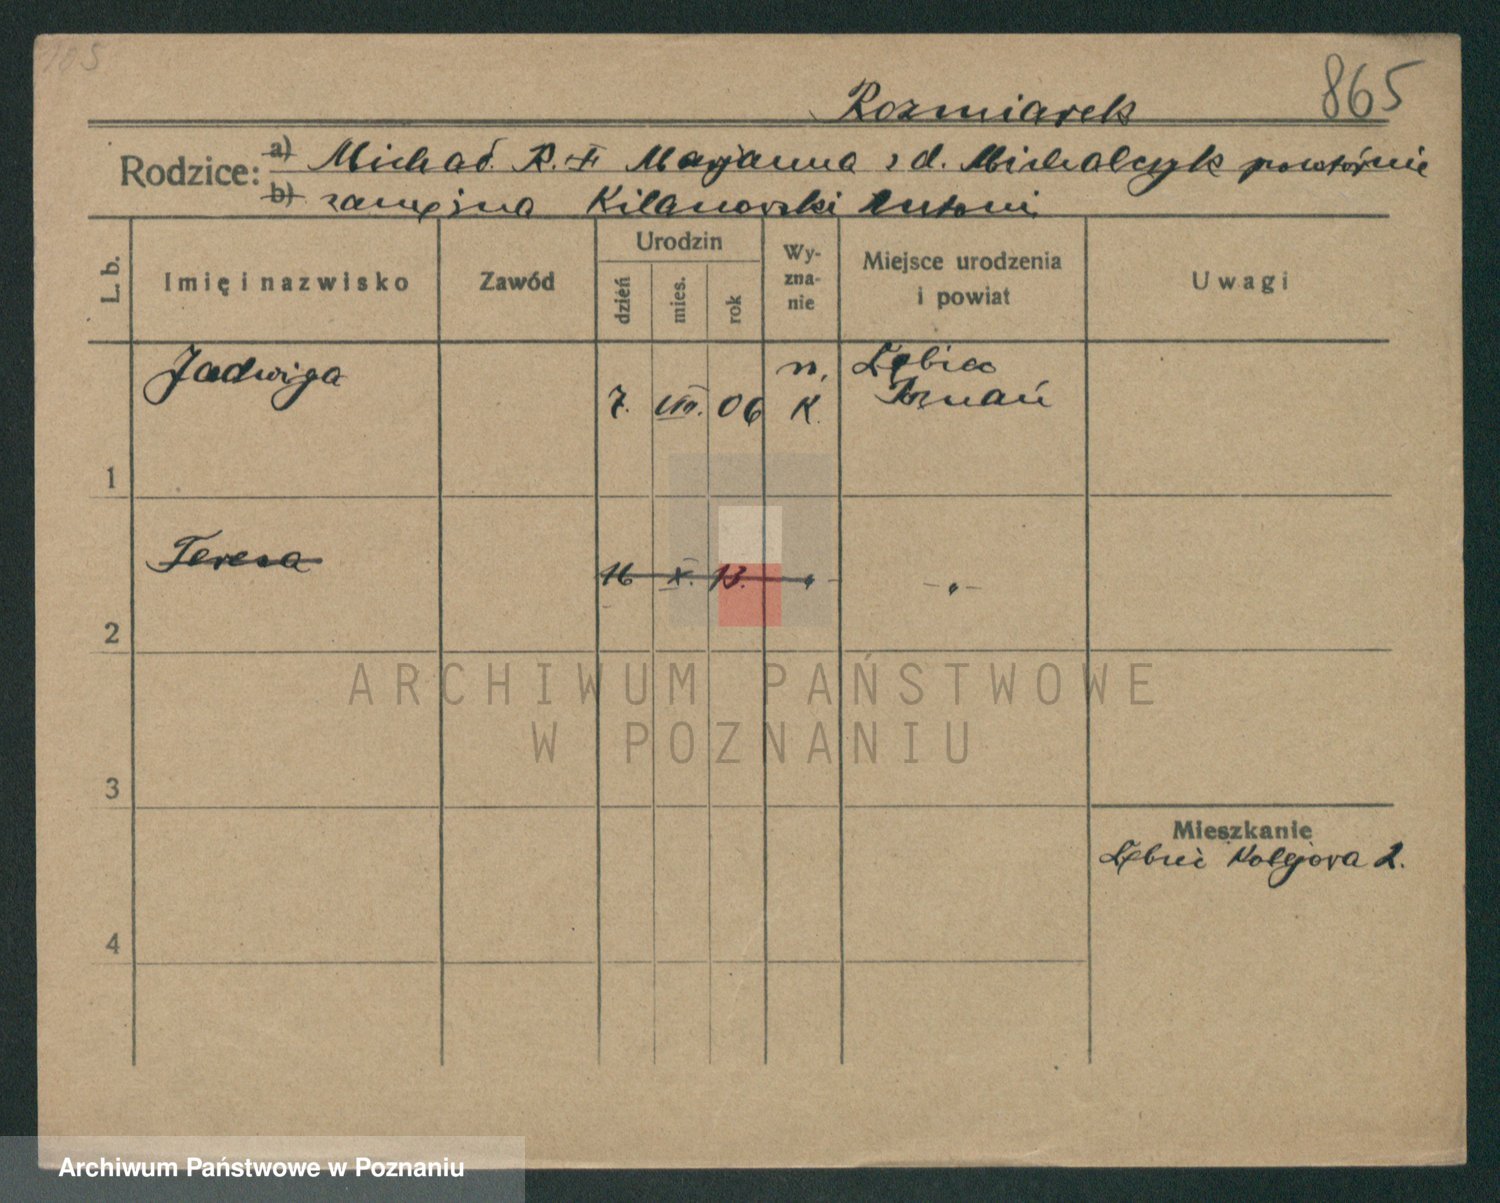 105
865
Rozmiarek
Rodzice: a) Michał R. + Marjanna z d. Michalczyk powtórnie
b) zamężna Kilanowski Antoni
L. b. Imię i nazwisko Zawód Urodzin dzień mies. rok Wyzna-nie Miejsce urodzenia i powiat Uwagi
1 Jadwiga 7. VIII. 06 r. K. Dębiec Poznań
2 Teresa 16 X. 13. " -"-
3
4
Mieszkanie
Dębiec Kolejowa 2.
ARCHIWUM PAŃSTWOWE
W POZNANIU
Archiwum Państwowe w Poznaniu